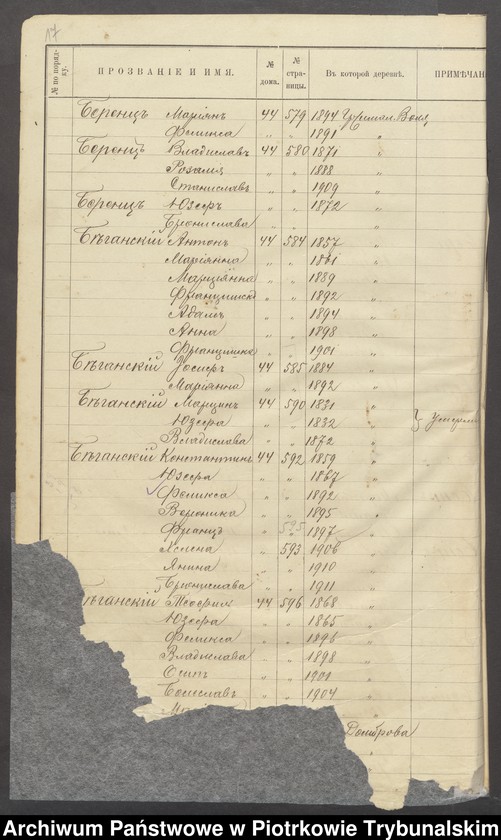 17
№ по порядку.
ПРОЗВАНІЕ И ИМЯ.
№ дома.
№ страницы.
Въ которой деревнѣ,
ПРИМѢЧАН
Беренцъ Маріянъ 44 579 1894 Воля
Фелиkса „ „ 1891 „
Беренцъ Владиславъ 44 580 1871 „
Розалія „ „ 1888 „
Станиславъ „ „ 1909 „
Беренцъ Юзефъ „ „ 1872 „
Брониславa „ „ „
Бѣганскій Антонъ 44 584 1857 „
Маріянна „ „ „
Марціянна „ „ 1889 „
Францишекъ „ „ 1892 „
Адамъ „ „ 1894 „
Анна „ „ 1898 „
Францишка „ „ 1901 „
Бѣганскій Іосифъ 44 585 1884 „
Маріянна „ „ 1892 „
Бѣганскій Марцинъ 44 590 1831 „
Юзефа „ „ 1832 „ } Умерли
Владислава „ „ 1872 „
Бѣганскій Константинъ 44 592 1859 „
Юзефа „ „ 1867 „
Феликса „ „ 1892 „
Вероника „ „ 1895 „
Францъ „ 595 1897 „
593 1906 „
Янина „ „ 1910 „
Брониславa „ „ 1911 „
Бѣганскій Теофиль 44 596 1868 „
Юзефа „ „ 1865 „
Феликса „ „ 1896 „
Владислава „ „ 1898 „
Осипъ „ „ 1901 „
Болеславъ „ „ 1904 „
Домброва
Archiwum Państwowe w Piotrkowie Trybunalskim